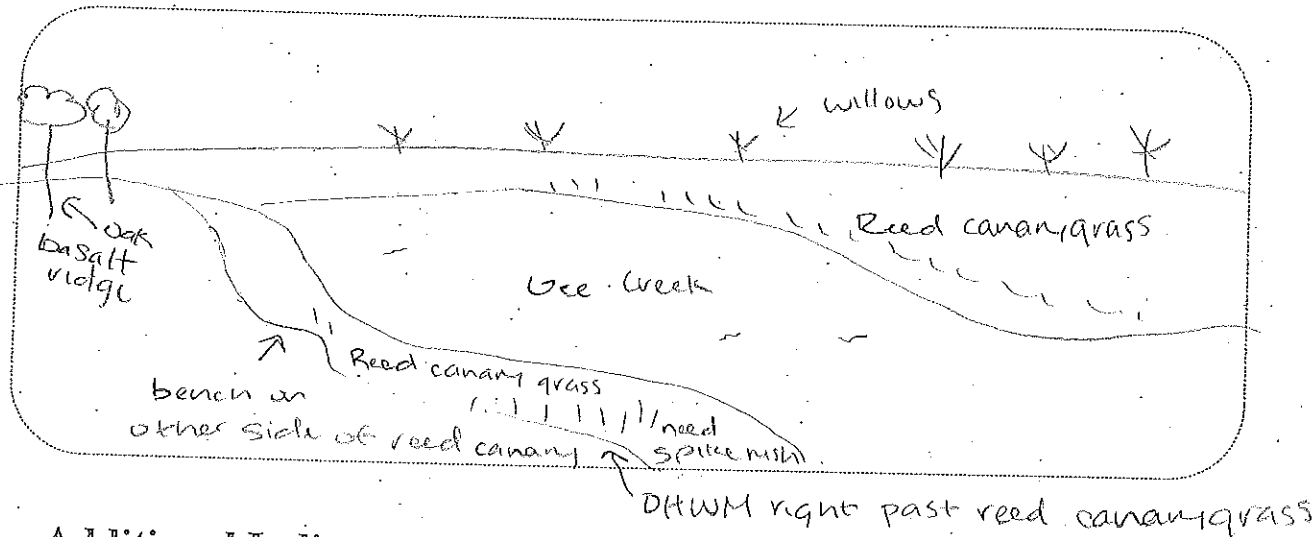 willows
oak
basalt
ridge
Reed canarygrass
Gee Creek
Reed canary grass
bench on
other side of reed canary
spikerush
OHWM right past reed canarygrass